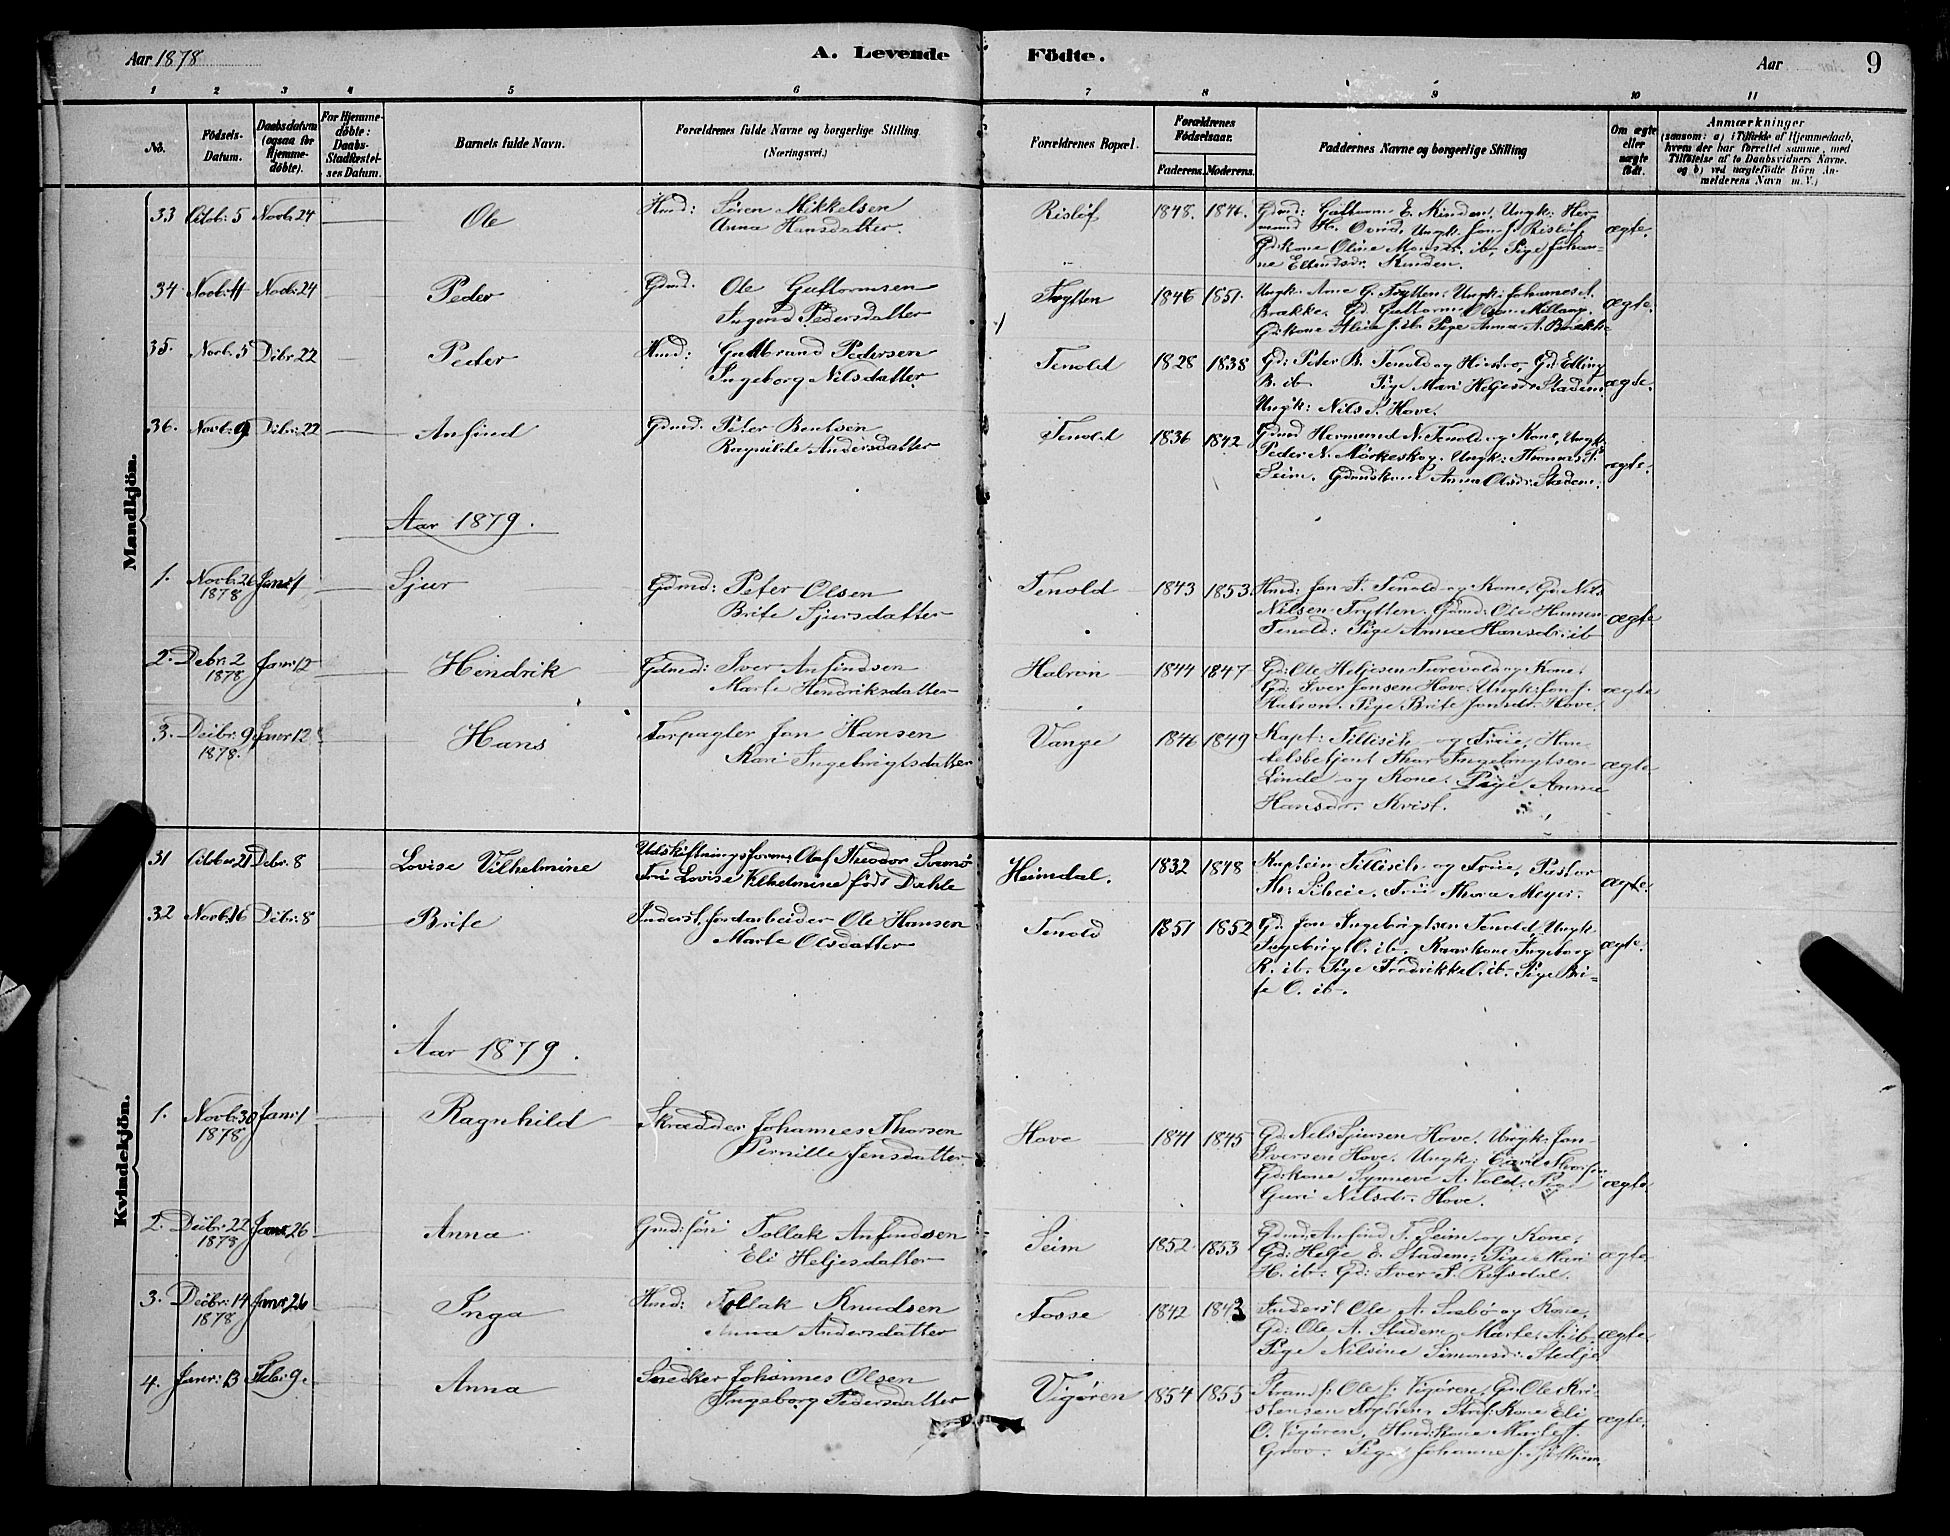 Aar 1878
A. Levende Födte.
Aar
9
1 2 3 4 5 6 7 8 9 10 11
No.
Födsels-
Datum.
Daabsdatum
(ogsaa for
Hjemme-
döbte).
For Hjemme-
döbte:
Daabs-
Stadfæstel-
ses Datum.
Barnets fulde Navn.
Forældrenes fulde Navne og borgerlige Stilling.
(Næringsvei.)
Forældrenes Bopæl.
Forældrenes
Födselsaar.
Faderens. Moderens.
Faddernes Navne og borgerlige Stilling
Om ægte
eller
uægte
födt.
Anmærkninger
(saasom: a) i Tilfælde af Hjemmedaab,
hvem der har forrettet samme, med
Tilföielse af to Daabsvidners Navne.
og b) ved uægtefödte Börn An-
melderens Navn m. V.)
Mandkjön.
33 Octob: 5 Novb: 24 Ole
Hmd: Sören Mikkelsen
Anna Hansdatter.
Rislöf 1848. 1846.
Gdmd: Guttorm E. Minden, Ungk: Her-
mund H. Ovrid, Ungk. Jon J. Rislöf,
Gd:kone Oline Monsdr. ib, Pige Johan-
ne Ellendsdr. Minden.
ægte.
34 Novb: 4 Novb: 24 Peder
Gdmd. Ole Guttormsen
Ingerid Pedersdatter
Frytten 1846 1851.
Ungk. Arne G. Frytten, Ungk: Johannes A.
Brække, Gd. Guttorm Olsen Millang,
Gd:kone J. ib. Pige Anna A. Brække
ægte.
35. Novb. 5 Debr. 22 Peder
Hmd: Gulbrand Pedersen
Ingeborg Nilsdatter
Tenold 1828 1838
Gd: Peter B. Tenold og Hustro, Gd: Elling
B. ib Pige Mari Helgesdr Stadem
Ungk: Nils S. Hove.
ægte.
36. Novb. 9 Debr: 22 Anfind
Gdmd. Peter Bentsen
Ragnilde Andersdatter
Tenold 1836 1842.
Gdmd Hermund N. Tenold og Kone, Ungk:
Peder N. Mörkeskog. Ungk: Thomas P.
Seim. Gdmdskone Anna Olsdr: Stadem.
ægte.
Aar 1879.
1. Novb. 26 Janr 1 Sjur
1878
Gdmd: Peter Olsen
Brite Sjursdatter
Tenold 1843 1853.
Hmd: Jon J. Tenold og Kone, Gd: Nils
Nilsen Frytten. Gdmd: Ole Hansen
Tenold: Pige Anna Hansdr: ib
ægte
2. Debr. 2 Janr: 12 Hendrik
1878
Gdmd: Iver Anfindsen
Marte Hendriksdatter
Halson 1844 1847
Gd: Ole Heljesen Turevold og Kone,
Gd: Iver Jonsen Hove. Ungk: Jon J.
Halson. Pige Brite Jonsdr. Hove.
ægte
3. Decbr. 9 Janr 12 Hans
1878.
Forpagter Jon Hansen
Kari Ingebrigtsdatter
Vange 1846 1849
Kapt: Tillisch og Frue, Han-
delsbetjent Thor Ingebrigtsen
Linde og Kone. Pige Anna
Hansdr. Kvist.
ægte
Kvindekjön.
31 October 21 Debr. 8 Lovise Vilhelmine
Udskiftningsform. Olaf Theodor Svanö
Fru Lovise Vilhelmine födt Dahle
Heimdal. 1832 1848
Kaptein Tillisch og Frue, Pastor
Th: Sibeie. Frue Thora Meyer.
ægte.
32 Novb. 16 Debr: 8 Brite
Inderst. Jordarbeider Ole Hansen
Marte Olsdatter
Tenold 1851 1852
Gd. Jon Ingebrigtsen Tenold Ungk
Ingebrigt O. ib. Kaarkone Ingeborg
R. ib. Pige Fredrikke O. ib. Pige Bri-
te O. ib.
ægte.
Aar 1879.
1. Novb. 30 Janr: 1 Ragnhild
1878
Skrædder Johannes Thorsen
Pernille Jensdatter
Hove 1841 1845
Gd: Nils Sjursen Hove, Ungk. Jon
Iversen Hove. Ungk:
Gd:kone Synneve A. Vold. Pige
Guri Nilsdr. Hove.
ægte
2. Decbr. 22 Janr 26 Anna
1878
Gmd:sön Tollak Anfindsen
Eli Heljesdatter
Seim 1852 1853
Gdmd. Anfind T. Seim og Kone,
Gd: Helje E. Stadem, Pige Mari
H. ib. Gd: Iver S. Refsdal.
ægte
3. Decbr: 14 Janr 26 Inga
1878
Hmd: Tollak Knudsen
Anna Andersdatter
Fosse 1842 1843
Inderst Ole A. Seebö og Kone,
Gd: Ole A. Stadem Marte A. ib.
Pige Nilsine Simonsdr: Stedje
ægte
4. Janr: 13 Febr: 9. Anna
Snedker Johannes Olsen
Ingeborg Pedersdatter
Vigören 1854 1855
Strand s. Ole J. Vigören, Gd: Ole Kri-
stensen Strds:kone Eli
O. Vigören, Hmd:kone Marte J.
Grov. Pige Johanne J.
ægte.